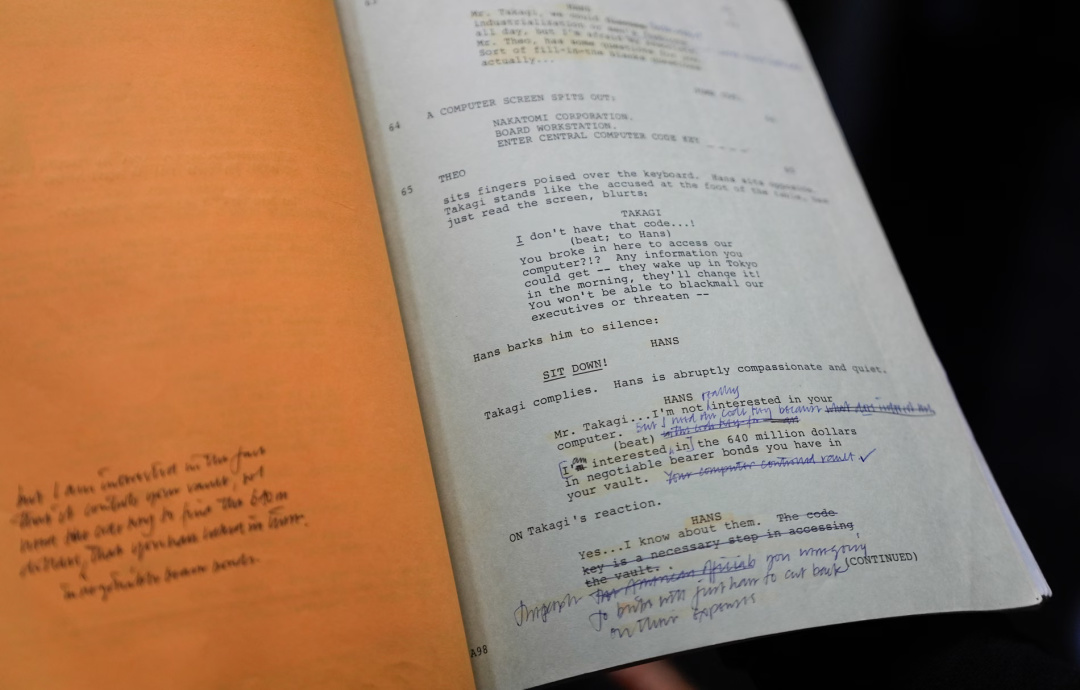 but I am interested in the fact
that it controls your vault,
need the code key to find the 640 m
dollars, that you have
in negotiable bearer bonds.
HANS
Mr. Takagi, we could discuss
industrialization
all day, but I'm afraid
Mr. Theo, has some questions for you
Sort of fill-in-the blanks questions
actually...
64
A COMPUTER SCREEN SPITS OUT:
NAKATOMI CORPORATION.
BOARD WORKSTATION.
ENTER CENTRAL COMPUTER CODE KEY _ _ _ _
65
THEO
65
sits fingers poised over the keyboard. Hans sits opposite.
Takagi stands like the accused at the foot of the table, has
just read the screen, blurts:
TAKAGI
I don't have that code...!
(beat; to Hans)
You broke in here to access our
computer?!? Any information you
could get -- they wake up in Tokyo
in the morning, they'll change it!
You won't be able to blackmail our
executives or threaten --
Hans barks him to silence:
HANS
SIT DOWN!
Takagi complies. Hans is abruptly compassionate and quiet.
HANS
really
Mr. Takagi...I'm not interested in your
computer. But I need the code key because
(beat)
am
I'm interested in the 640 million dollars
in negotiable bearer bonds you have in
your vault. Your computer controls vault ✓
ON Takagi's reaction.
HANS
Yes...I know about them. The code
key is a necessary step in accessing
the vault.
(CONTINUED)
American officials you were going
to bribe will just have to cut back
on their expenses
A98